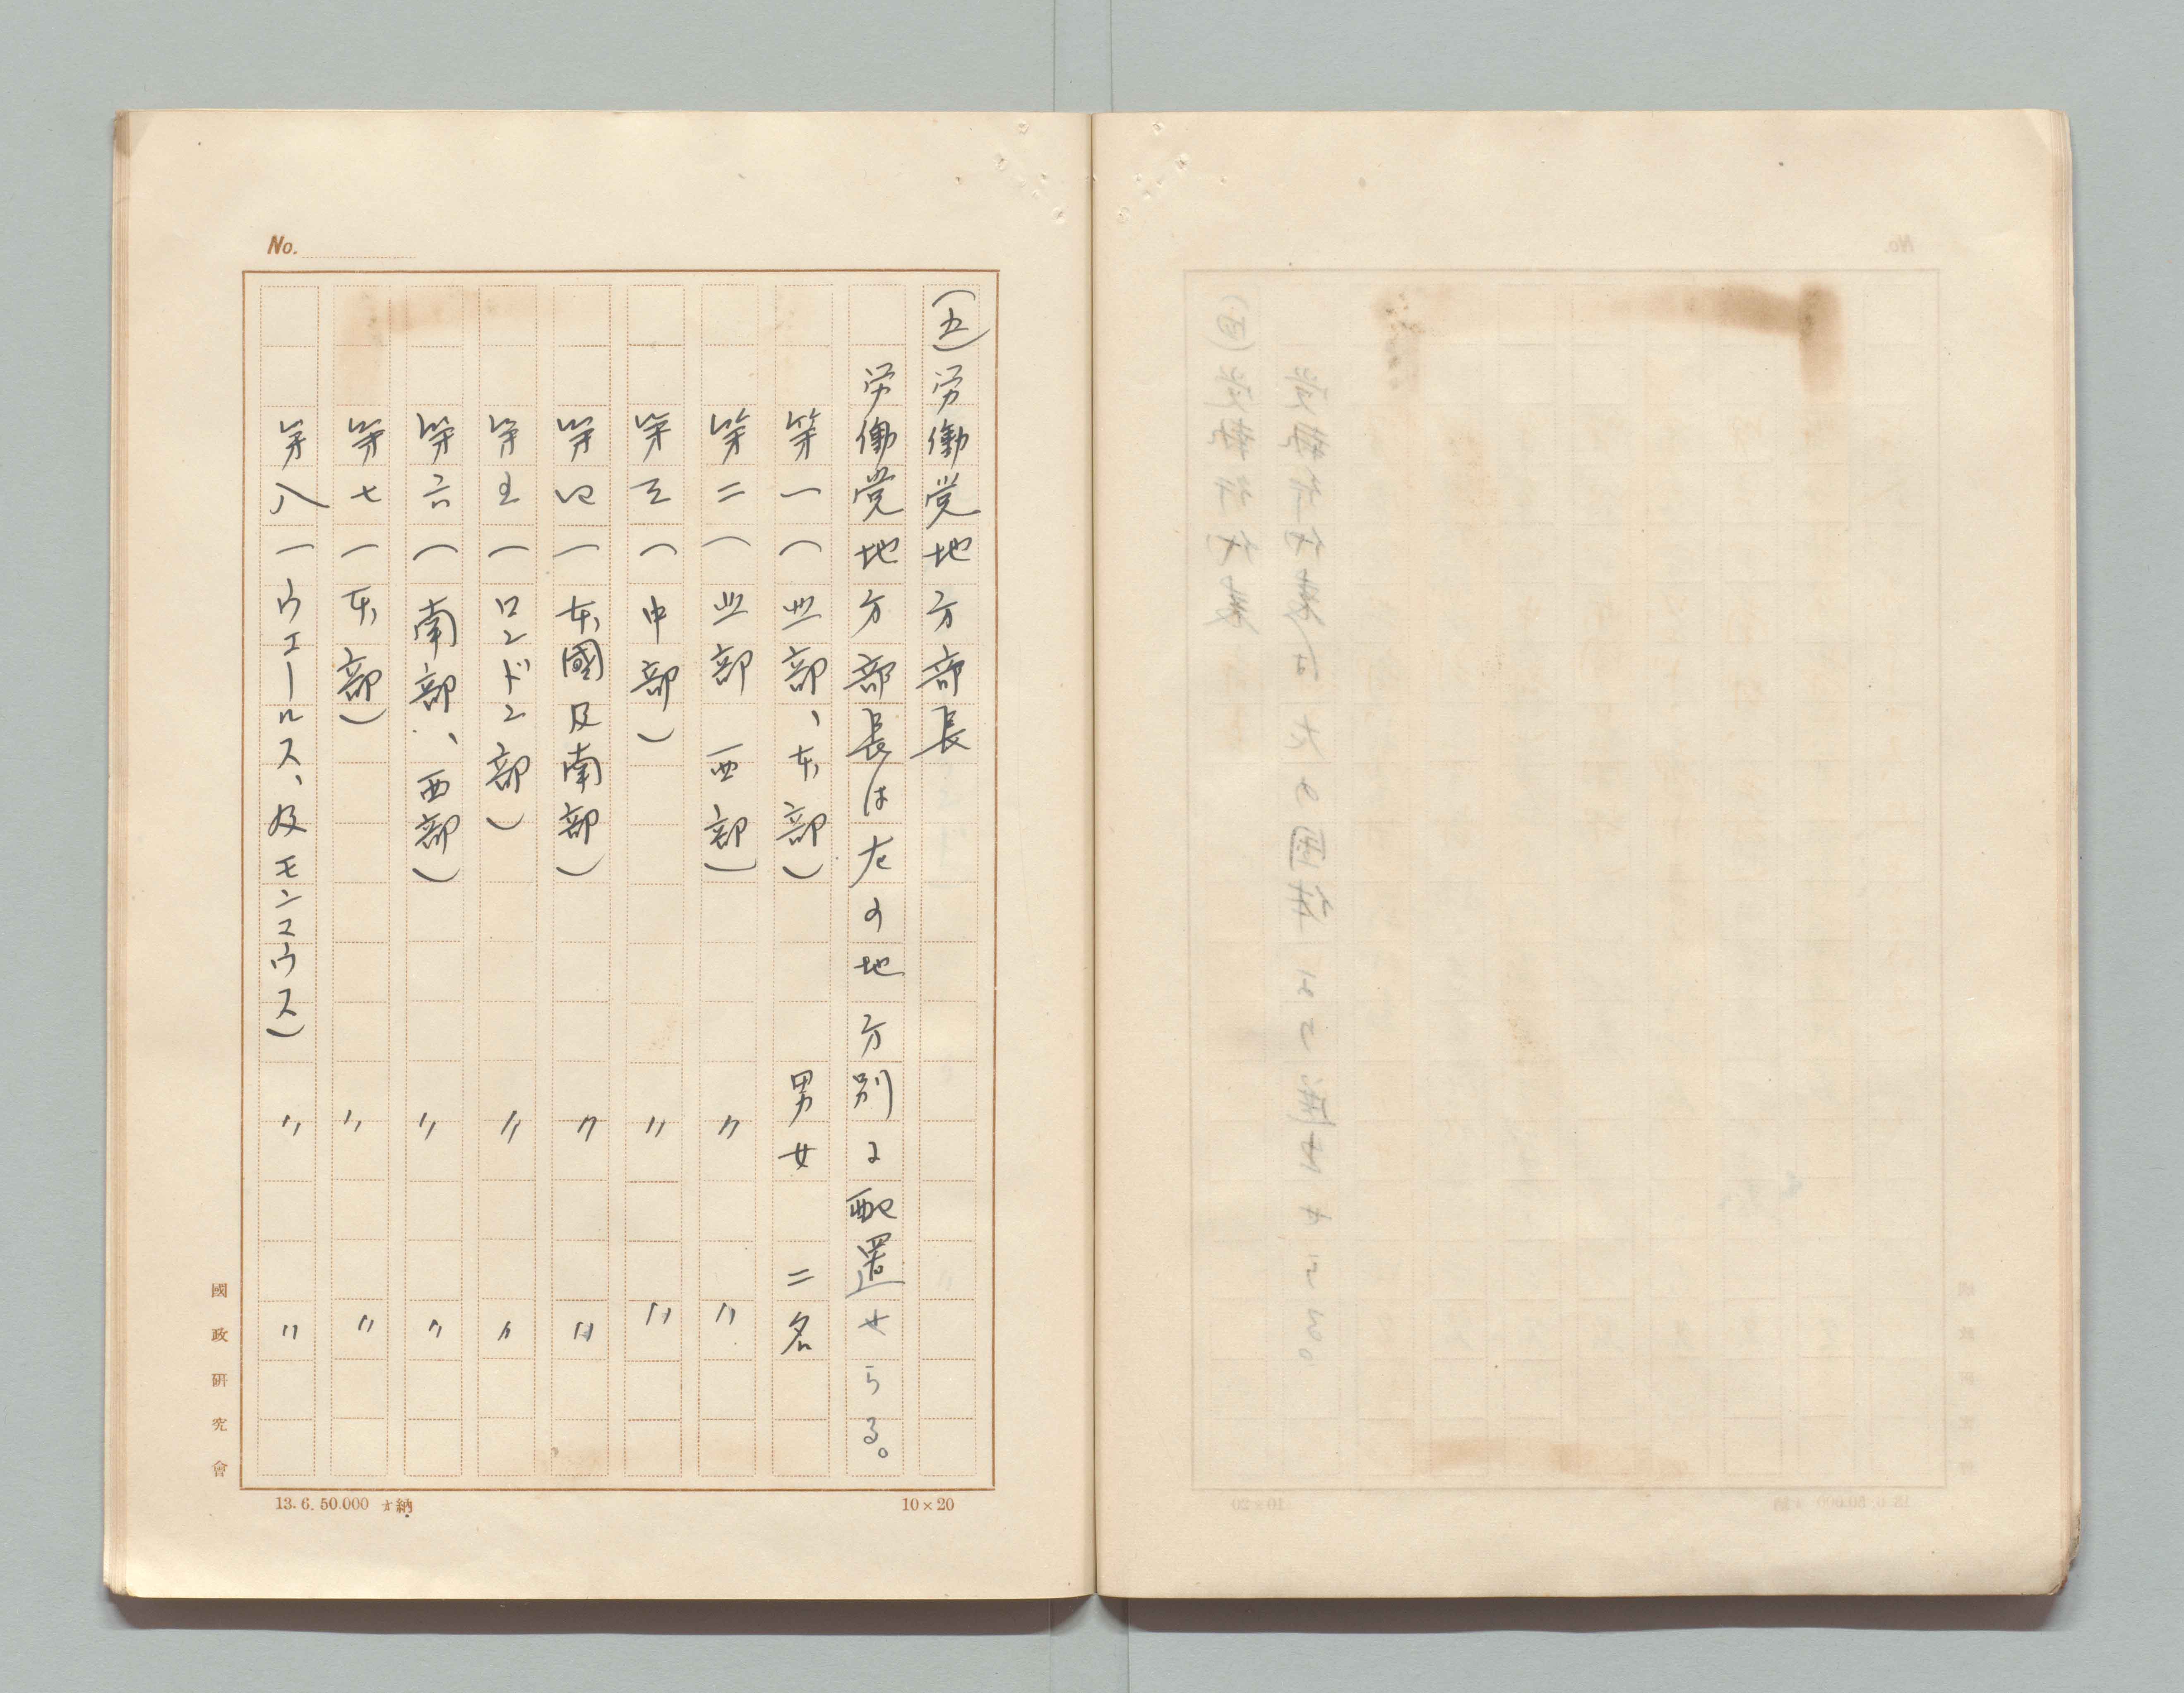 No.
(五)労働党地方部長
労働党地方部長は左の地方別に配置せらる。
第一(北部、東部) 男女 二名
第二(北部 西部) 〃 〃
第三(中部) 〃 〃
第四(東國及南部) 〃 〃
第五(ロンドン部) 〃 〃
第六(南部、西部) 〃 〃
第七(東部) 〃 〃
第八(ウエールス、及モンマウス) 〃 〃
國政研究會
13.6.50.000 納
10×20